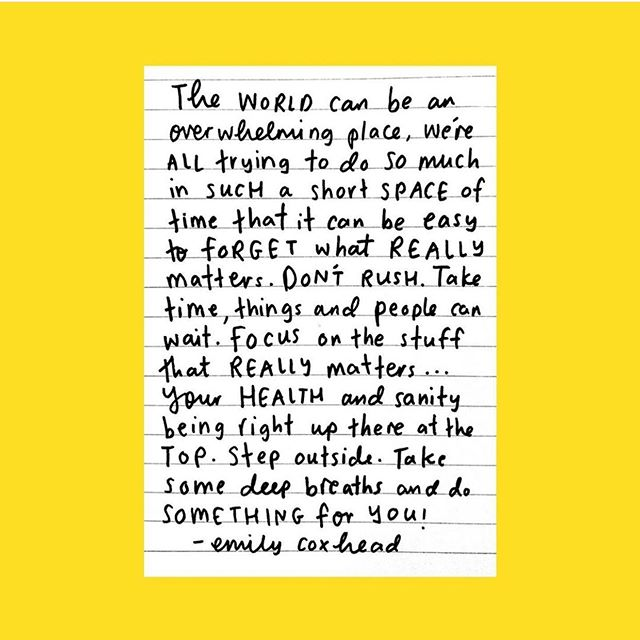 The WORLD can be an
overwhelming place, we're
ALL trying to do so much
in SUCH a short SPACE of
time that it can be easy
to FORGET what REALLY
matters. DON'T RUSH. Take
time, things and people can
wait. FOCUS on the stuff
that REALLY matters...
your HEALTH and sanity
being right up there at the
TOP. Step outside. Take
some deep breaths and do
SOMETHING for YOU!
- emily coxhead